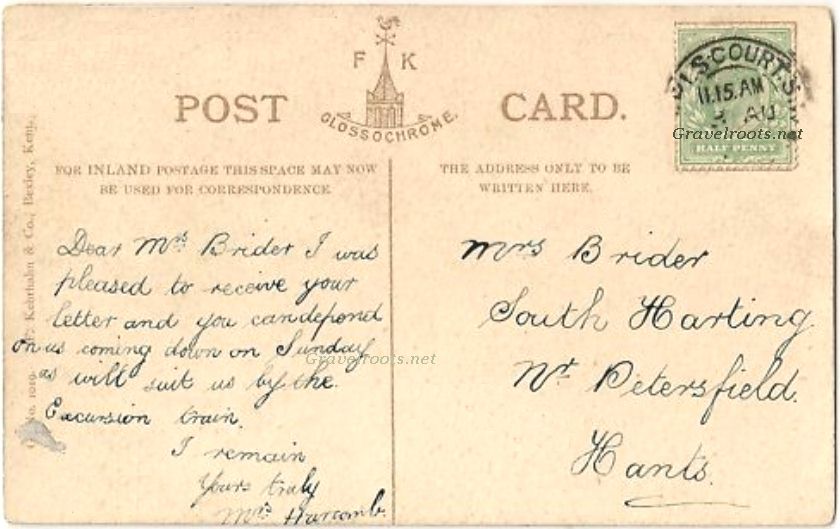 F K
GLOSSOCHROME.
POST CARD.
S. COURT. S
11.15. AM
AU
HALF PENNY
Gravelroots.net
FOR INLAND POSTAGE THIS SPACE MAY NOW
BE USED FOR CORRESPONDENCE.
THE ADDRESS ONLY TO BE
WRITTEN HERE.
Kehrhahn & Co., Bexley, Kent.
No. 1019.
Dear Mrs Brider I was
pleased to receive your
letter and you can depend
on us coming down on Sunday
as will suit us by the
Excursion train.
I remain
Yours truly
Mrs Harcomb.
Gravelroots.net
Mrs Brider
South Harting.
Nr Petersfield.
Hants.